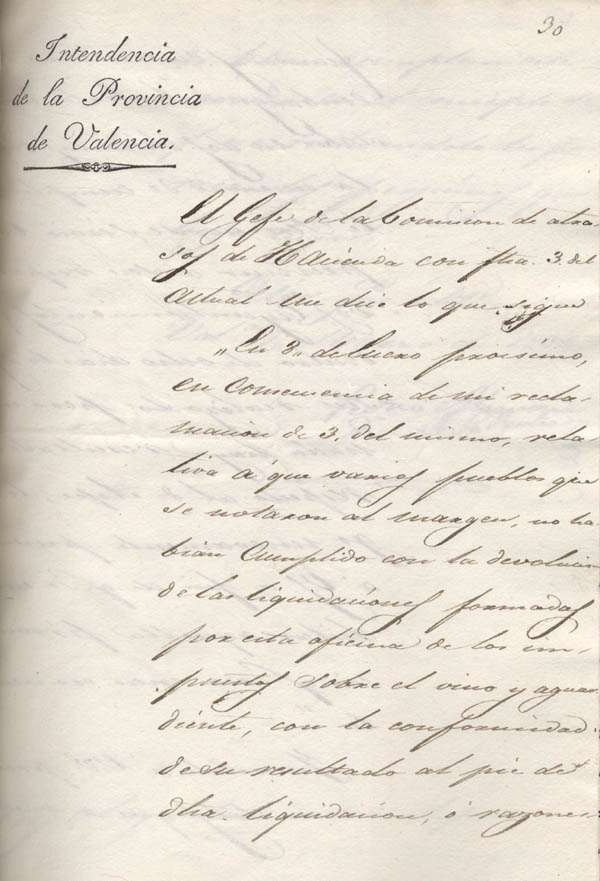 30
Intendencia
de la Provincia
de Valencia.
El Gefe de la Comision de atra-
sos de Hacienda con fha. 3. del
actual me dice lo que sigue
"En 8,, de Enero proximo,
en consecuencia de mi recla-
macion de 3. del mismo, rela-
tiva á que varios pueblos que
se notaron al margen, no ha-
bian cumplido con la devolucion
de las liquidaciones formadas
por esta oficina de los im-
puestos sobre el vino y aguar-
diente, con la conformidad
de su resultado al pie de
dha. liquidacion, ó razones